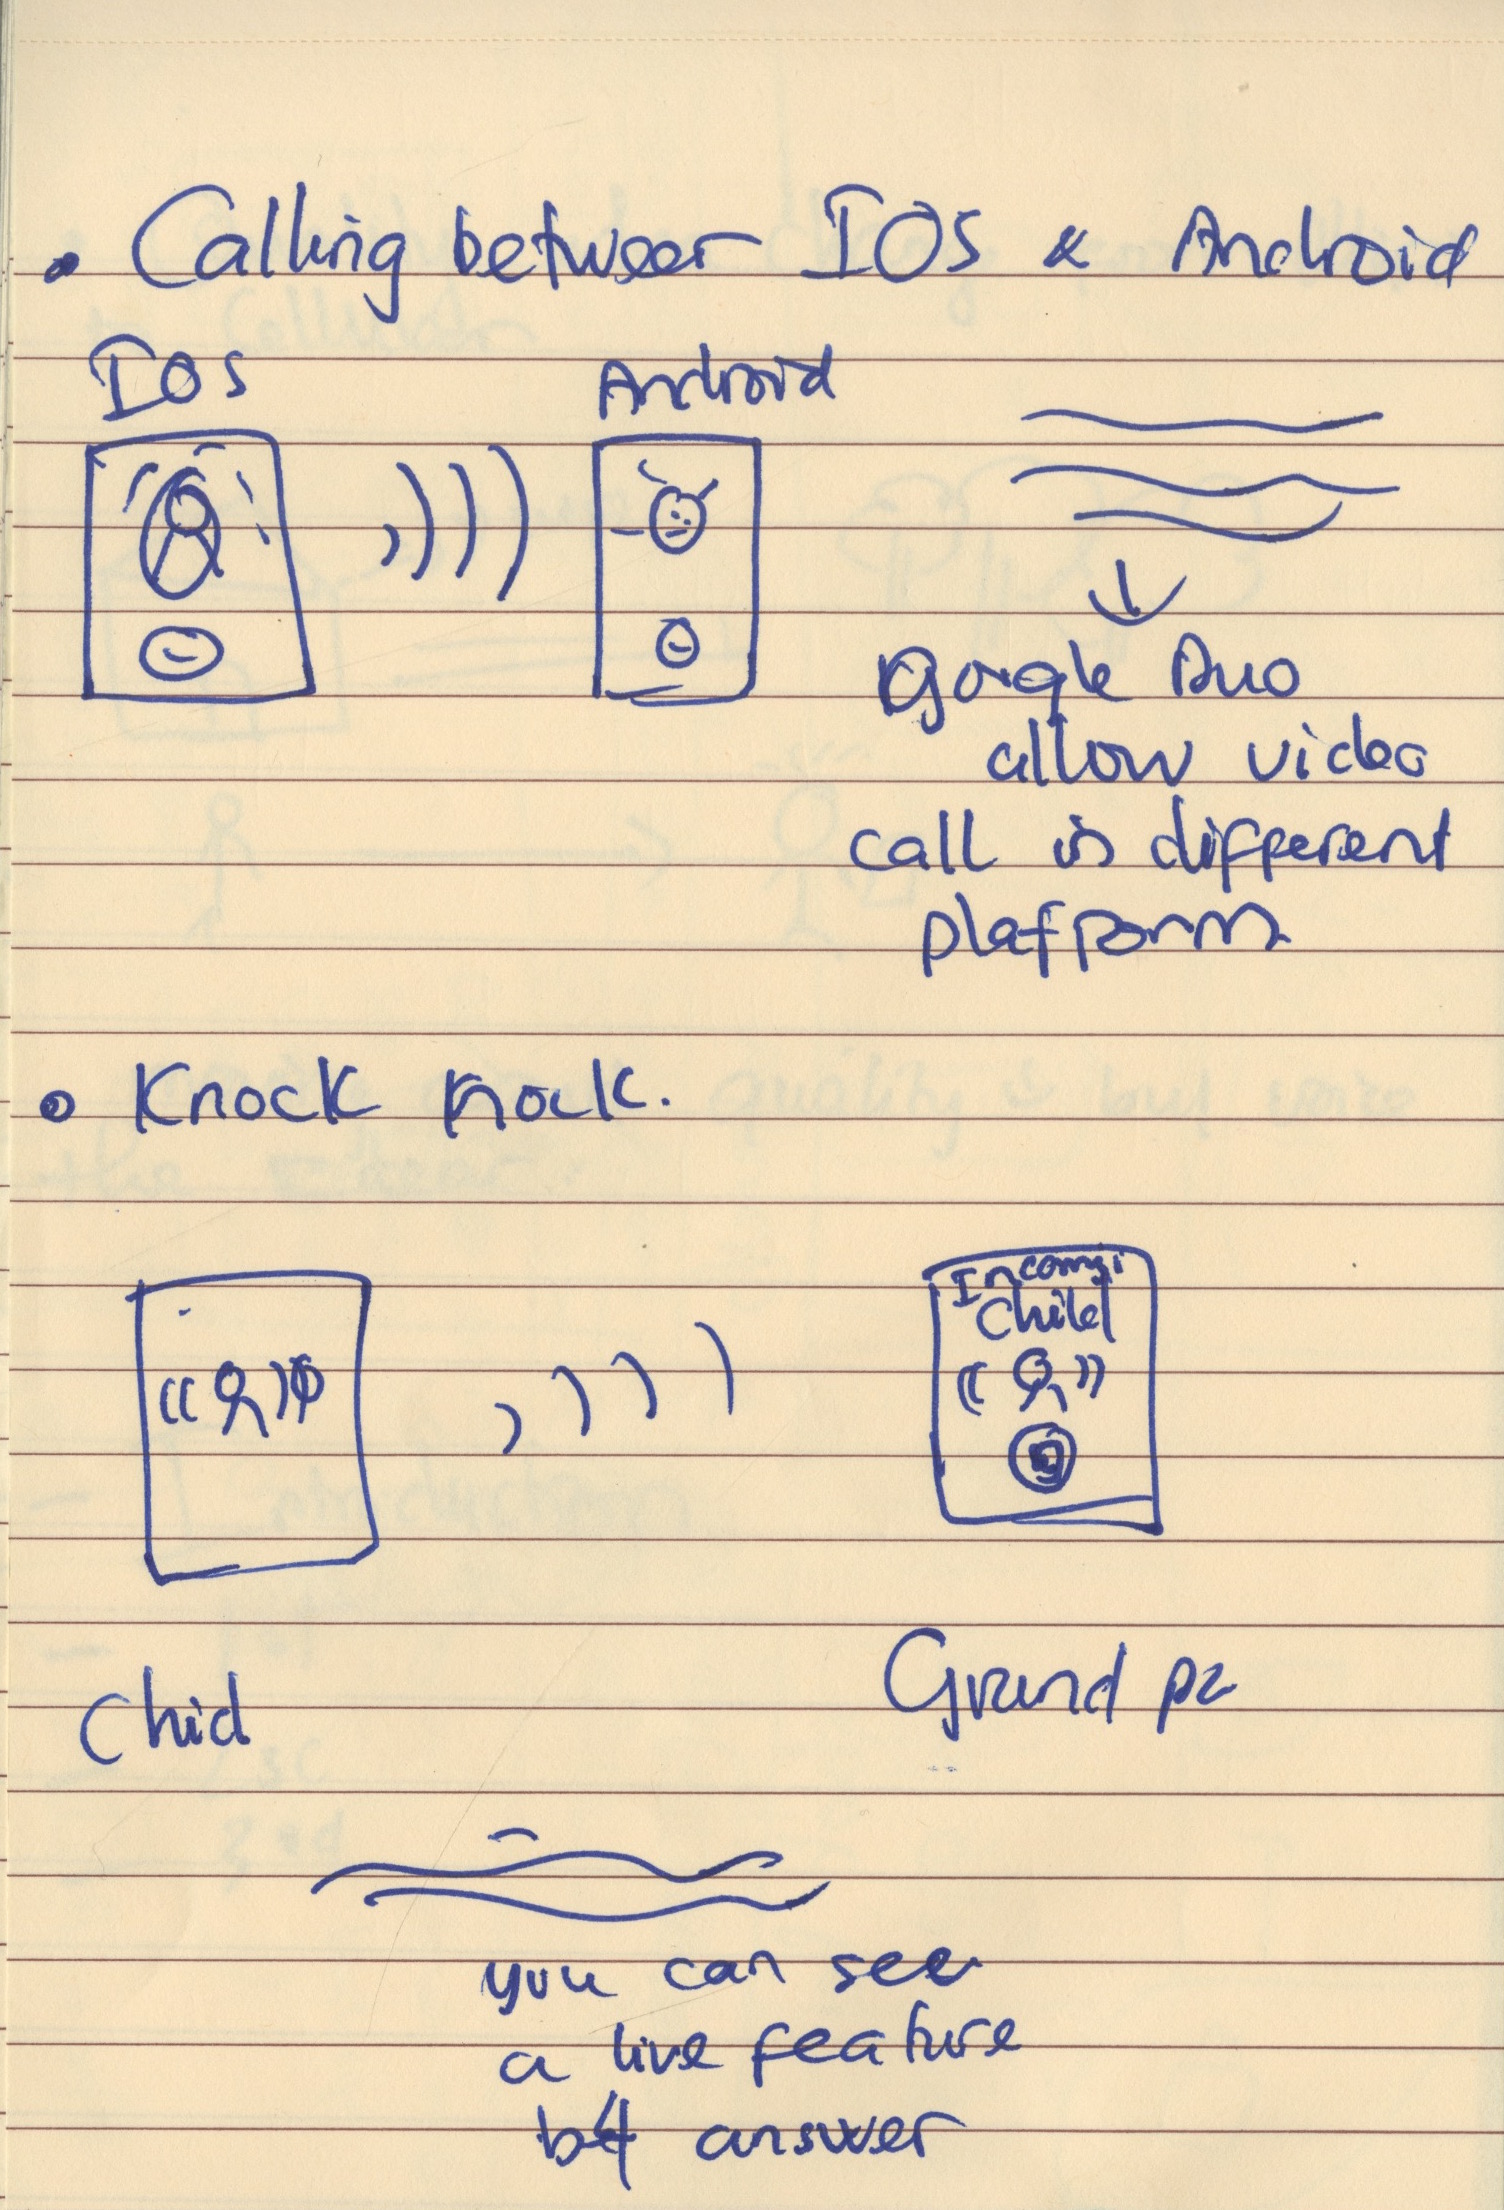 • Calling between IOS & Android
IOS
Android
Google Duo
allow video
call in different
platform
• Knock knock.
Incomi
Child
Chid
Grand pa
you can see
a live feature
b4 answer